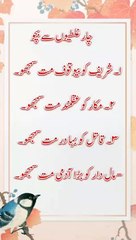 چار غلطیوں سے بچو
۱۔ شریف کو بیوقوف مت سمجھو۔
۲۔ مکار کو عقلمند مت سمجھو۔
۳۔ قاتل کو بہادر مت سمجھو۔
مال دار کو بڑا آدمی مت سمجھو۔